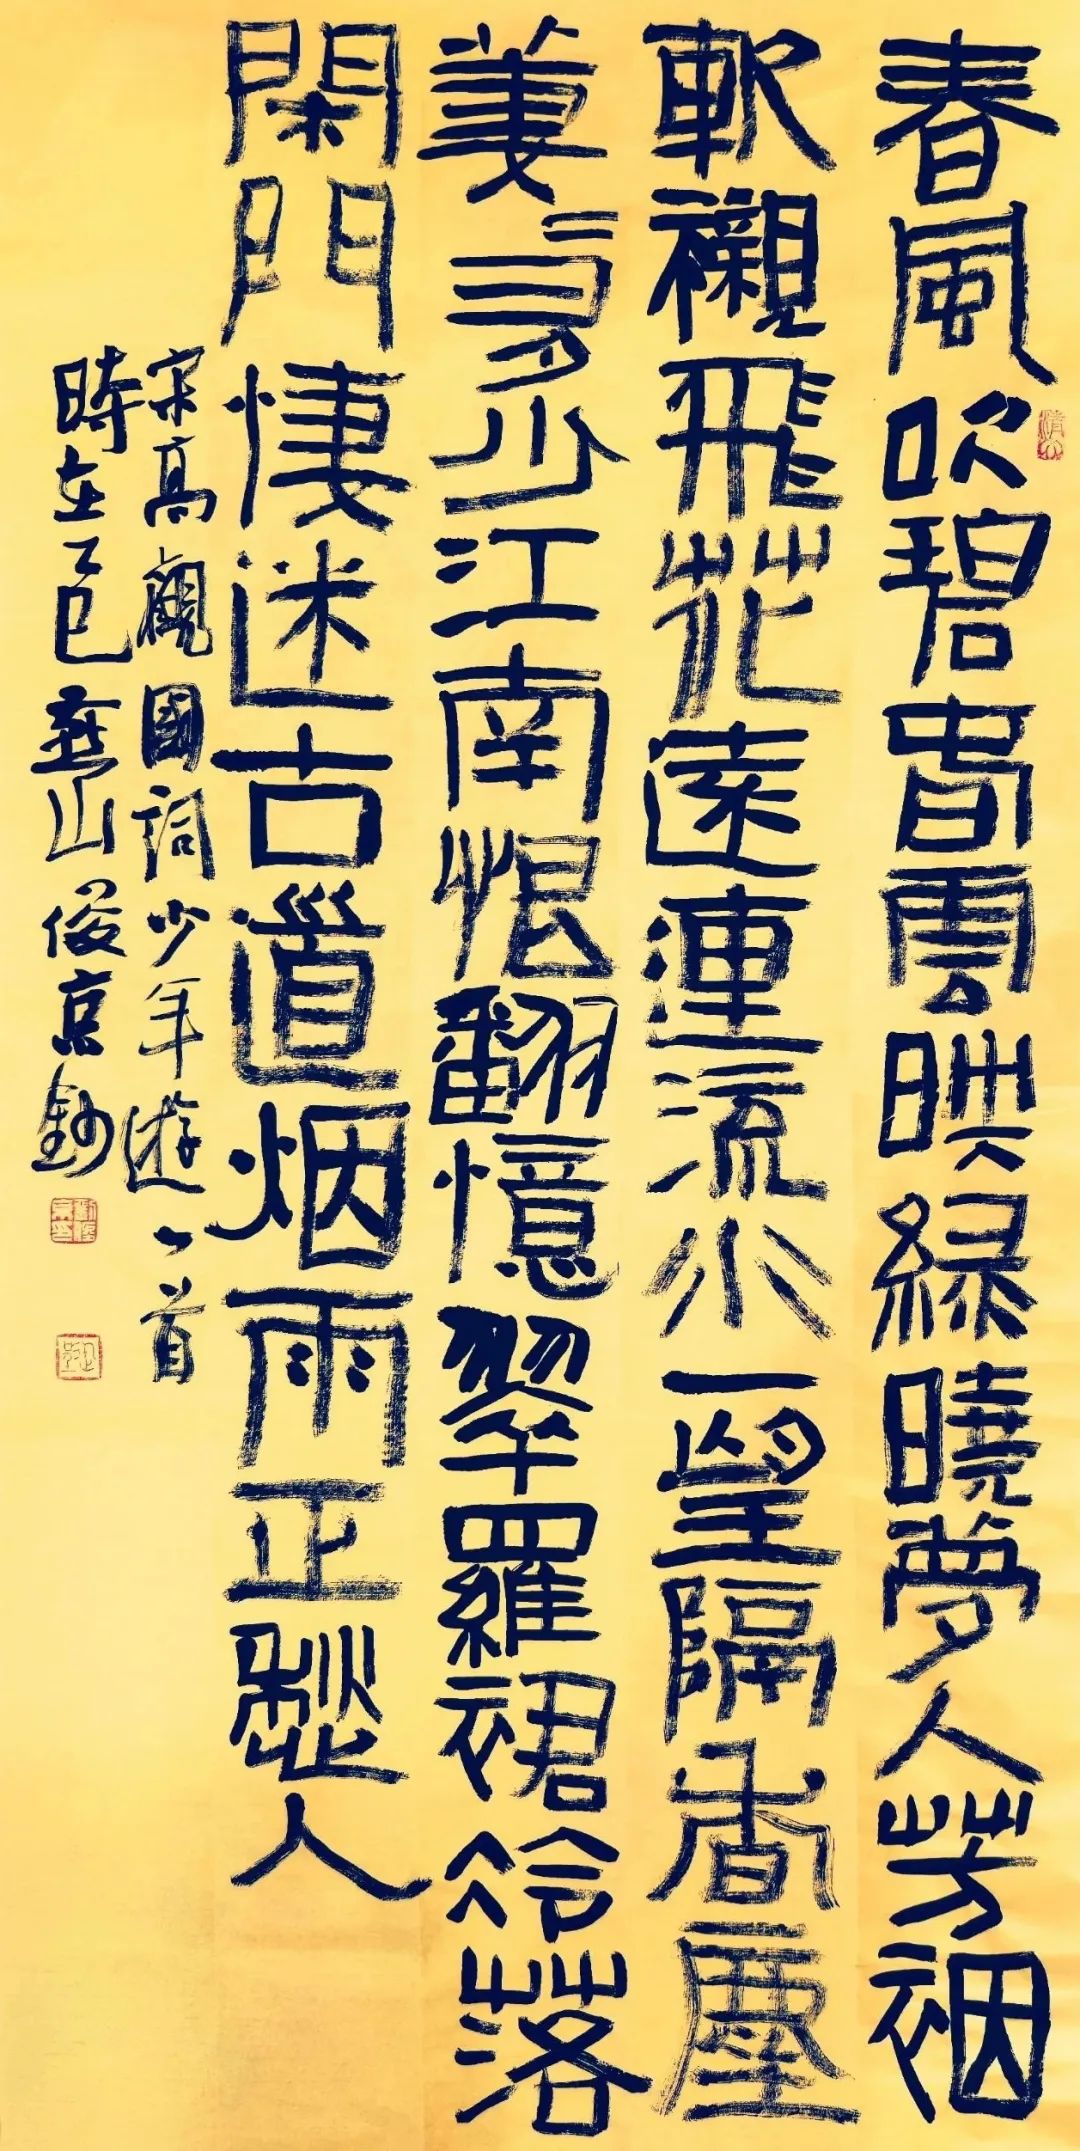 春風吹碧春雲映緑曉夢入芳裀
軟襯飛花遠連流水一望隔香塵
萋〻多少江南恨翻憶翠羅裙冷落
閑門悽迷古道烟雨正愁人
宋高觀國詞少年遊一首
時在乙巳燕山俊京鈔